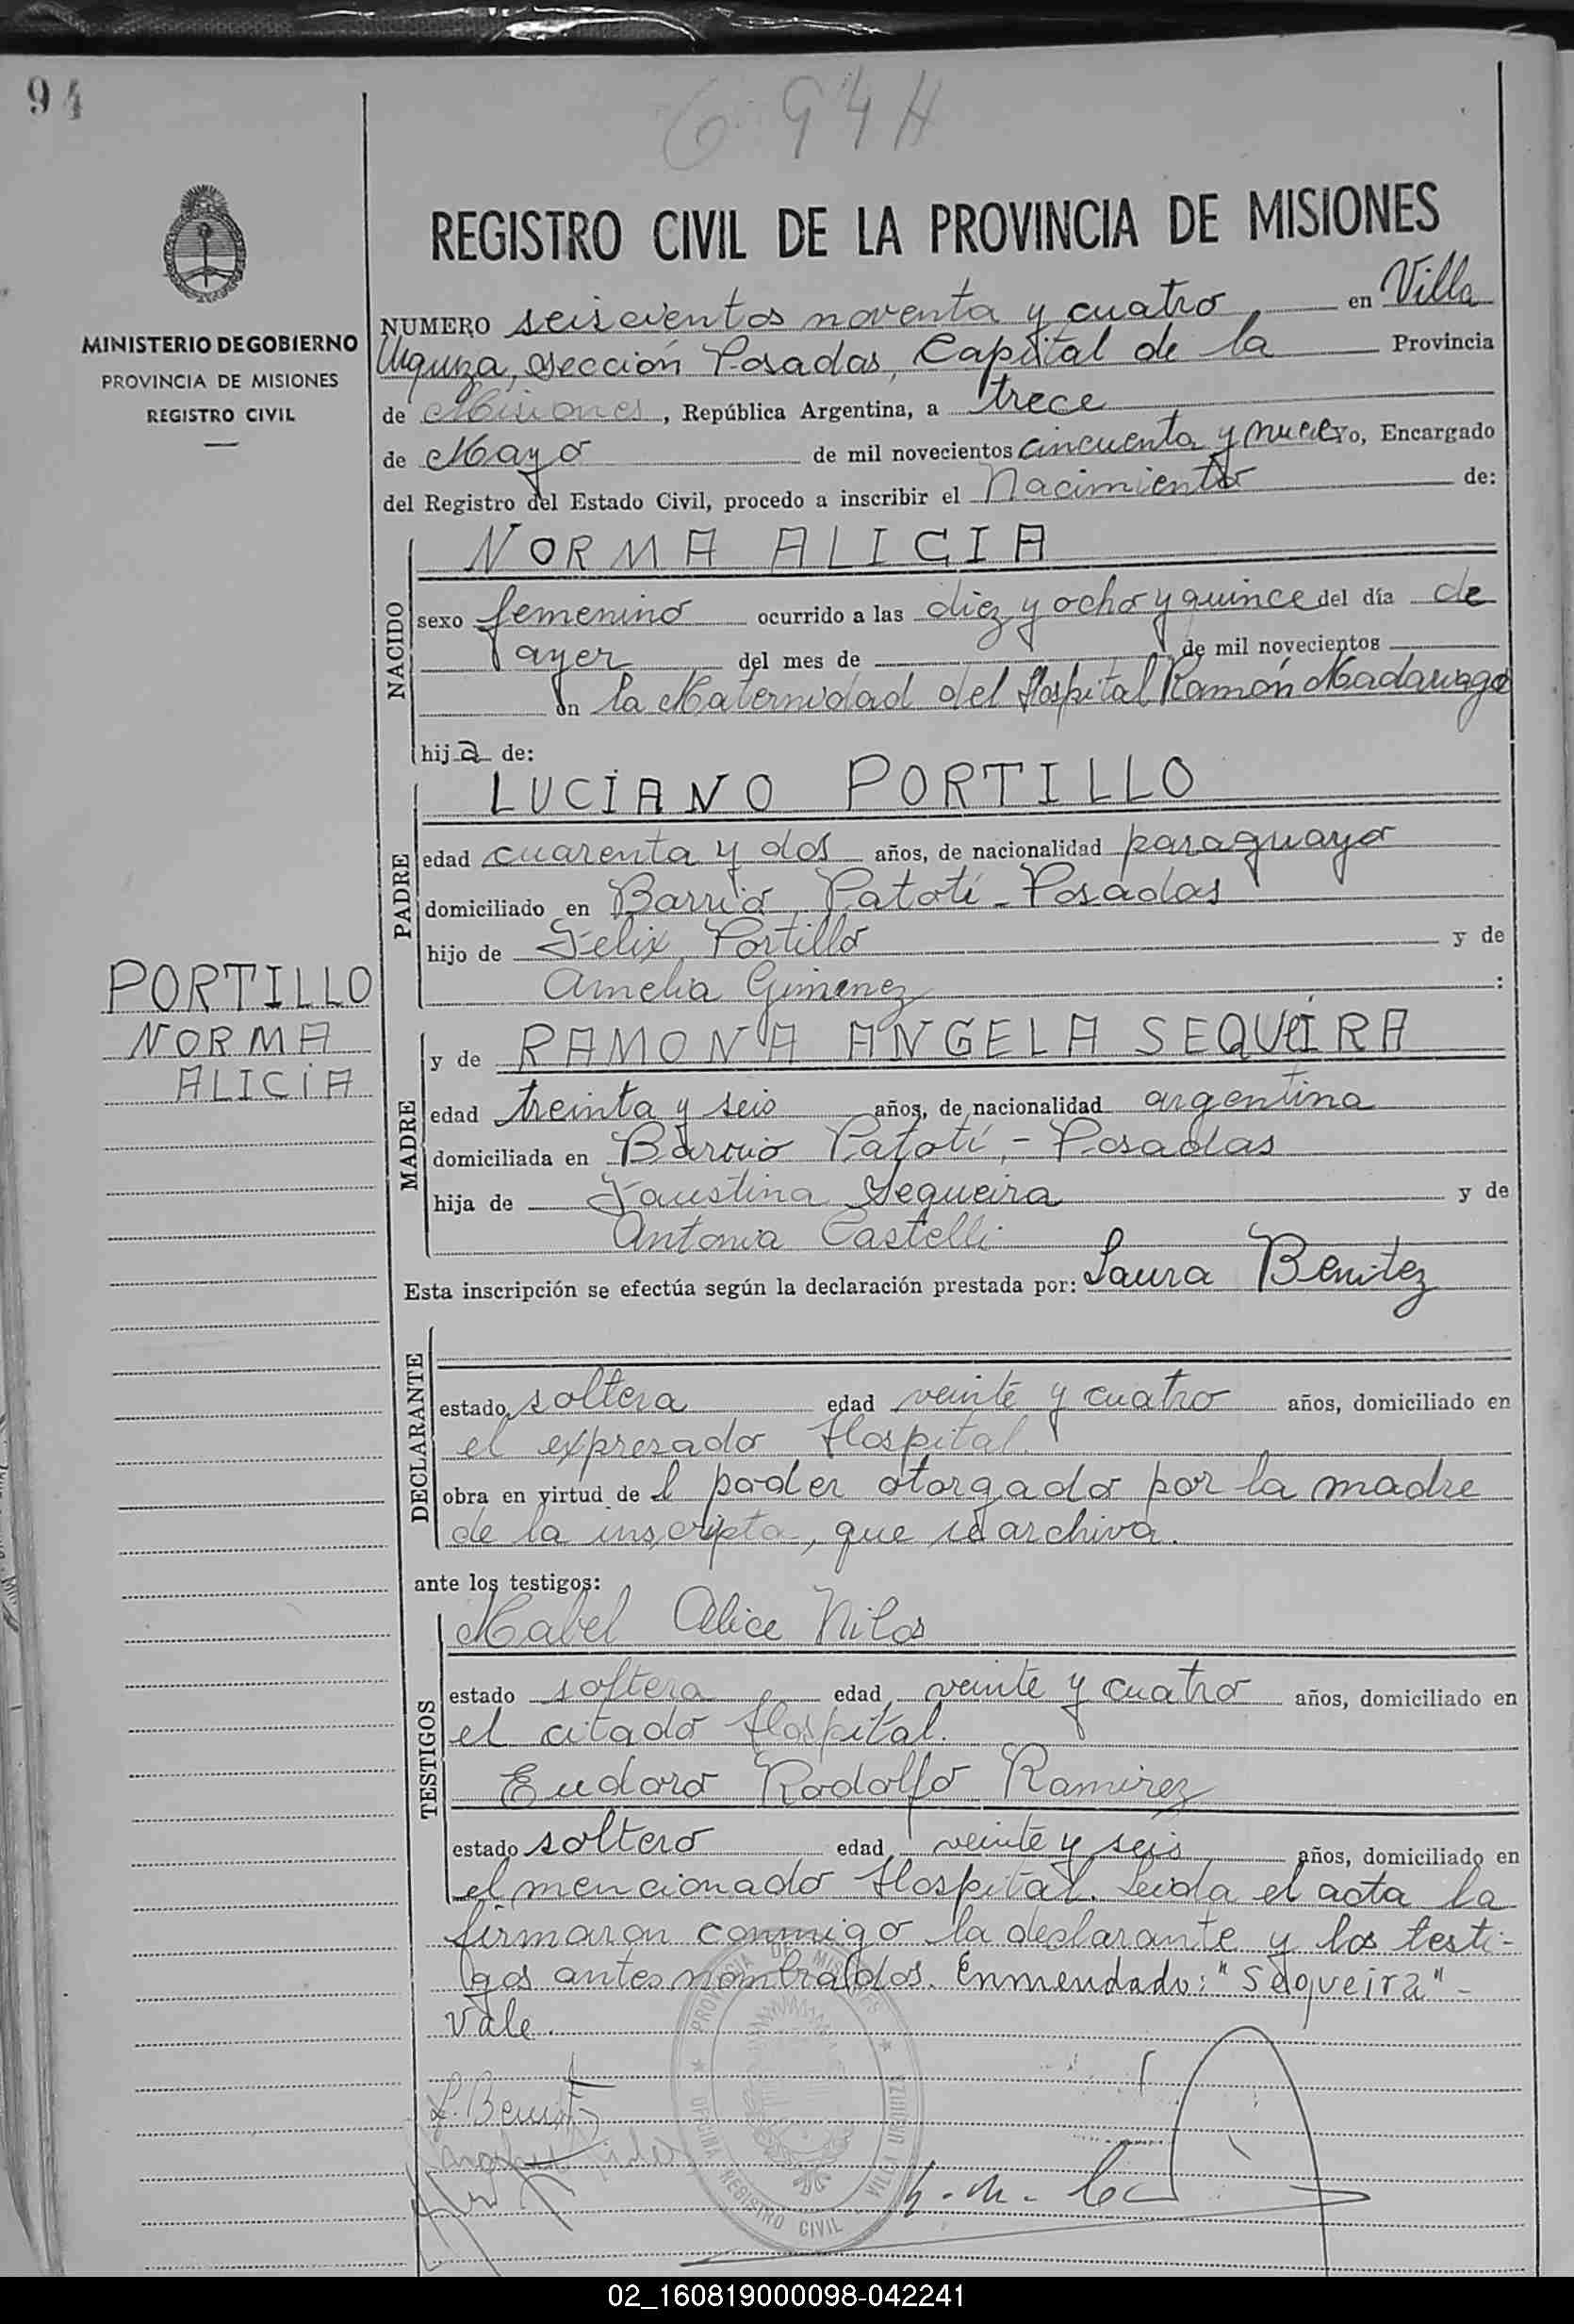 94
694 H
MINISTERIO DE GOBIERNO
PROVINCIA DE MISIONES
REGISTRO CIVIL
REGISTRO CIVIL DE LA PROVINCIA DE MISIONES
NUMERO seiscientos noventa y cuatro en Villa
Urquiza, Sección Posadas, Capital de la Provincia
de Misiones, República Argentina, a trece
de Mayo de mil novecientos cincuenta y nueve yo, Encargado
del Registro del Estado Civil, procedo a inscribir el Nacimiento de:
NACIDO
NORMA ALICIA
sexo femenino ocurrido a las diez y ocho y quince del día de
ayer del mes de de mil novecientos
en la Maternidad del Hospital Ramón Madariaga
hija de:
PADRE
LUCIANO PORTILLO
edad cuarenta y dos años, de nacionalidad paraguayo
domiciliado en Barrio Patotí - Posadas
hijo de Felix Portillo y de
Amelia Gimenez :
PORTILLO
NORMA
ALICIA
MADRE
y de RAMONA ANGELA SEQUEIRA
edad treinta y seis años, de nacionalidad argentina
domiciliada en Barrio Patotí, - Posadas
hija de Faustina Sequeira y de
Antonia Castelli
Esta inscripción se efectúa según la declaración prestada por: Laura Benitez
DECLARANTE
estado soltera edad veinte y cuatro años, domiciliado en
el expresado Hospital.
obra en virtud de l poder otorgado por la madre
de la inscripta, que se archiva.
ante los testigos:
TESTIGOS
Mabel Alice Nilos
estado soltera edad veinte y cuatro años, domiciliado en
el citado Hospital.
Eudoro Rodolfo Ramirez
estado soltero edad veinte y seis años, domiciliado en
el mencionado Hospital. Leida el acta la
firmaron conmigo la declarante y los testi-
gos antes nombrados. Enmendado: "Sequeira" -
Vale.
L. Benitez
PROVINCIA DE MISIONES
OFICINA REGISTRO CIVIL VILLA URQUIZA
02_160819000098-042241